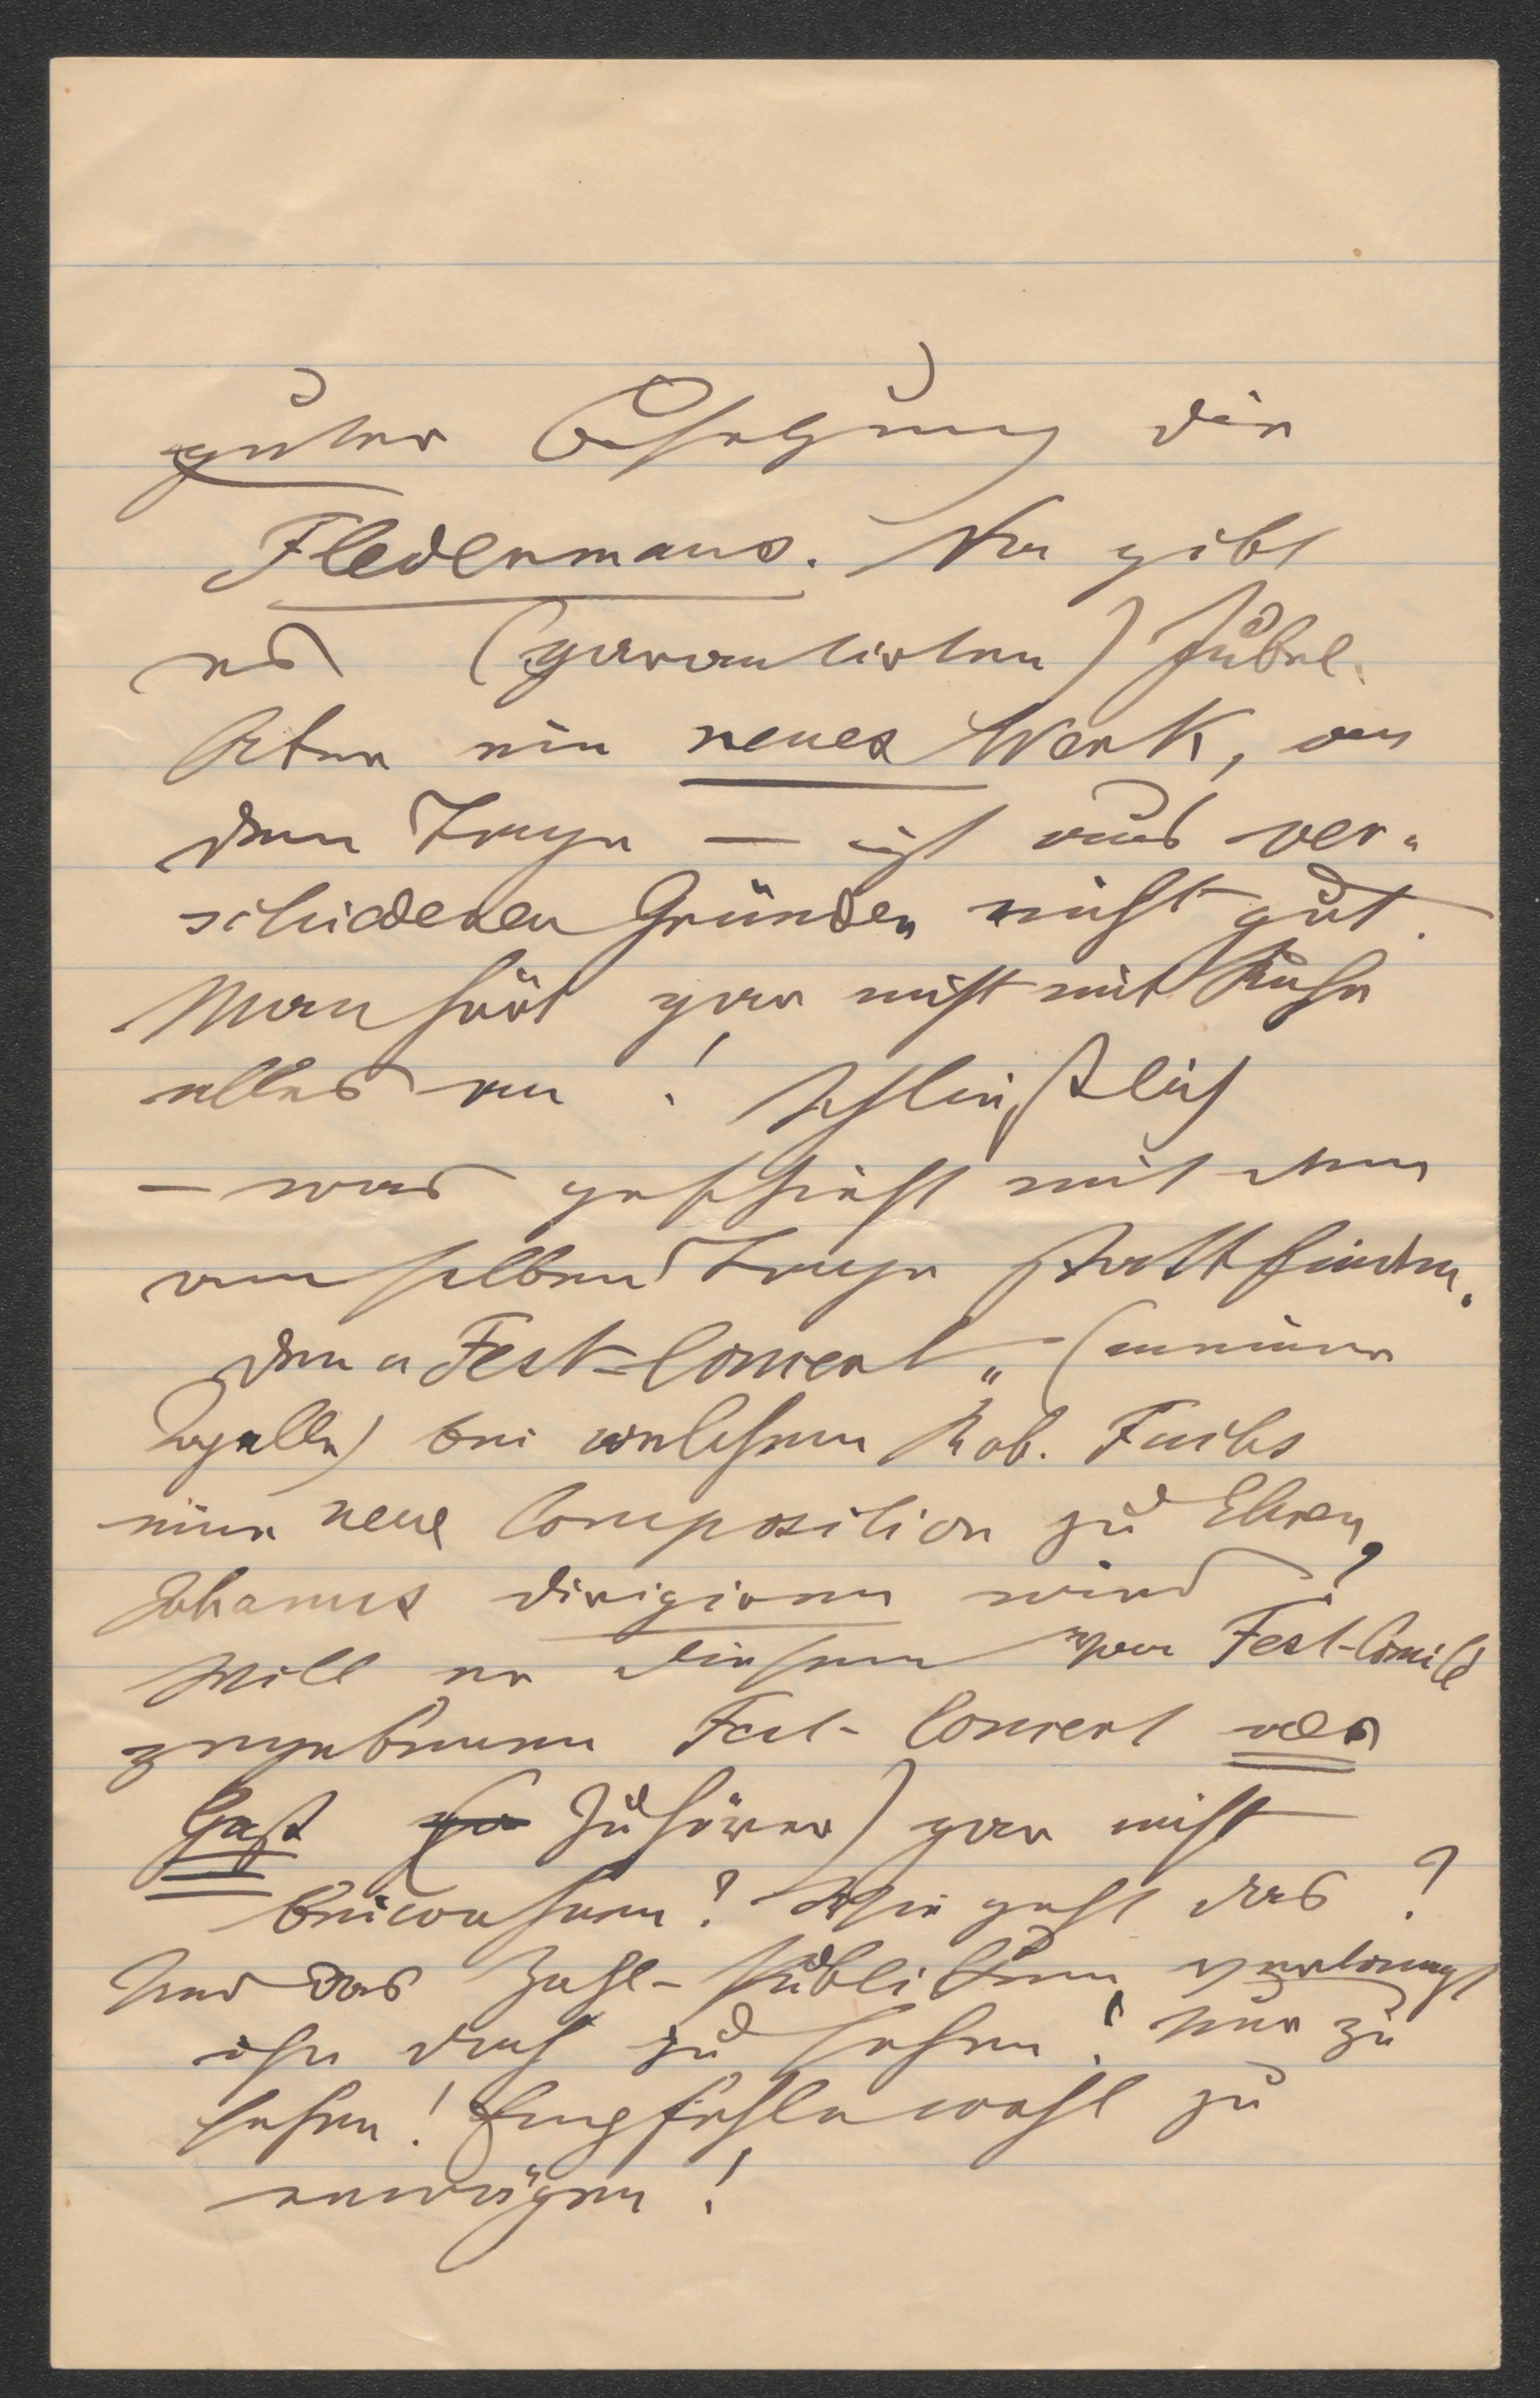 guter Besetzung die
Fledermaus. Da gibt
es (garantirten) Jubel.
Aber ein neues Werk, an
dem Tage — ist aus ver-
schiedenen Gründen nicht gut.
Man hört gar nicht mit Ruhe
alles an! Schließlich
– was geschieht mit dem
am selben Tage stattfinden-
den „Fest-Concert" (
) bei welchem Rob. Fuchs
eine neue Composition zu Ehren
Johanns dirigieren wird?
Will er diesem vom Fest-Comité
gegebenen Fest-Concert als
Gast (Zuhörer) gar nicht
beiwohnen? Wie geht das?
Und das Zahl-Publikum verlangt
ihn doch zu sehen! Nur zu
sehen! Empfehle wohl zu
erwägen!